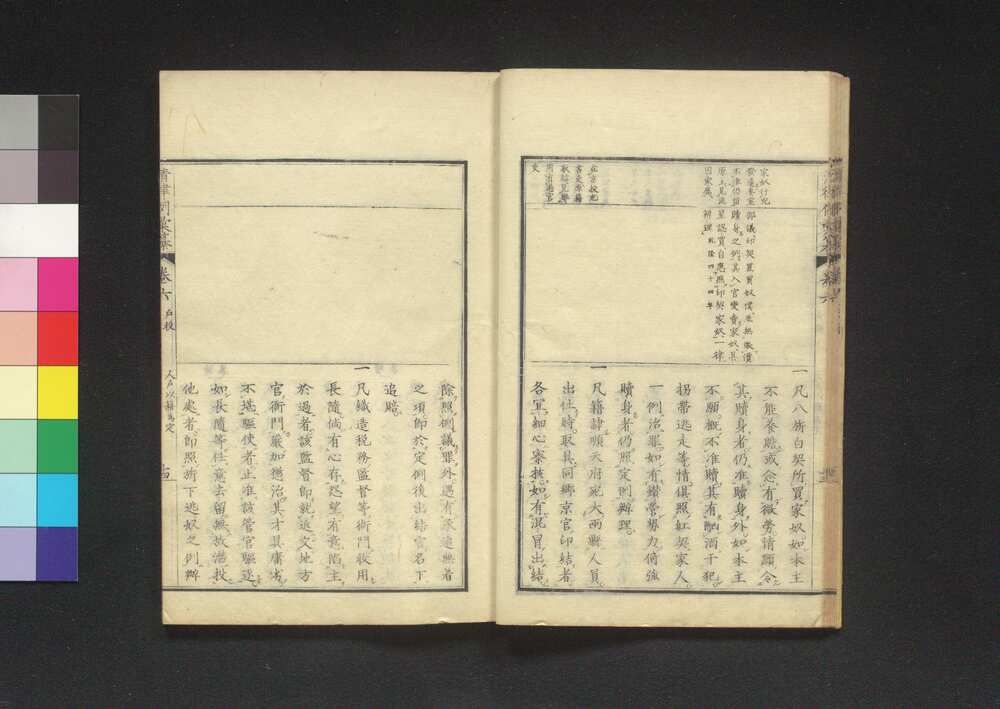 一凡八旂白契所買家奴如本主
不能養贍或念有微勞情願令
其贖身者仍准贖身外如本主
不願概不准贖其有酗酒干犯
拐帶逃走等情俱照紅契家人
一例治罪如有鑽營勢力倚強
贖身者仍照定例辦理
一凡籍隸順天府宛大兩縣人員
出仕時取具同鄉京官印結者
各宜細心察核如有混冒出結
部議印契置買奴僕並無徵價
贖身之例其入官變賣家奴其
呈認買自應照印契家奴一律
辦理乾隆四十四年
除照例議罪外遇有承追無着
之項即於定例後出結官名下
追賠
一凡織造稅務監督等衙門收用
長隨倘有心存怨望有意陷主
於過者該監督即就近交地方
官衙門嚴加懲治其才具庸劣
不堪驅使者止准該管官驅逐
如長隨等任意去留無故潛投
他處者即照旂下逃奴之例辦
卷六
戶役
人戶以籍為定